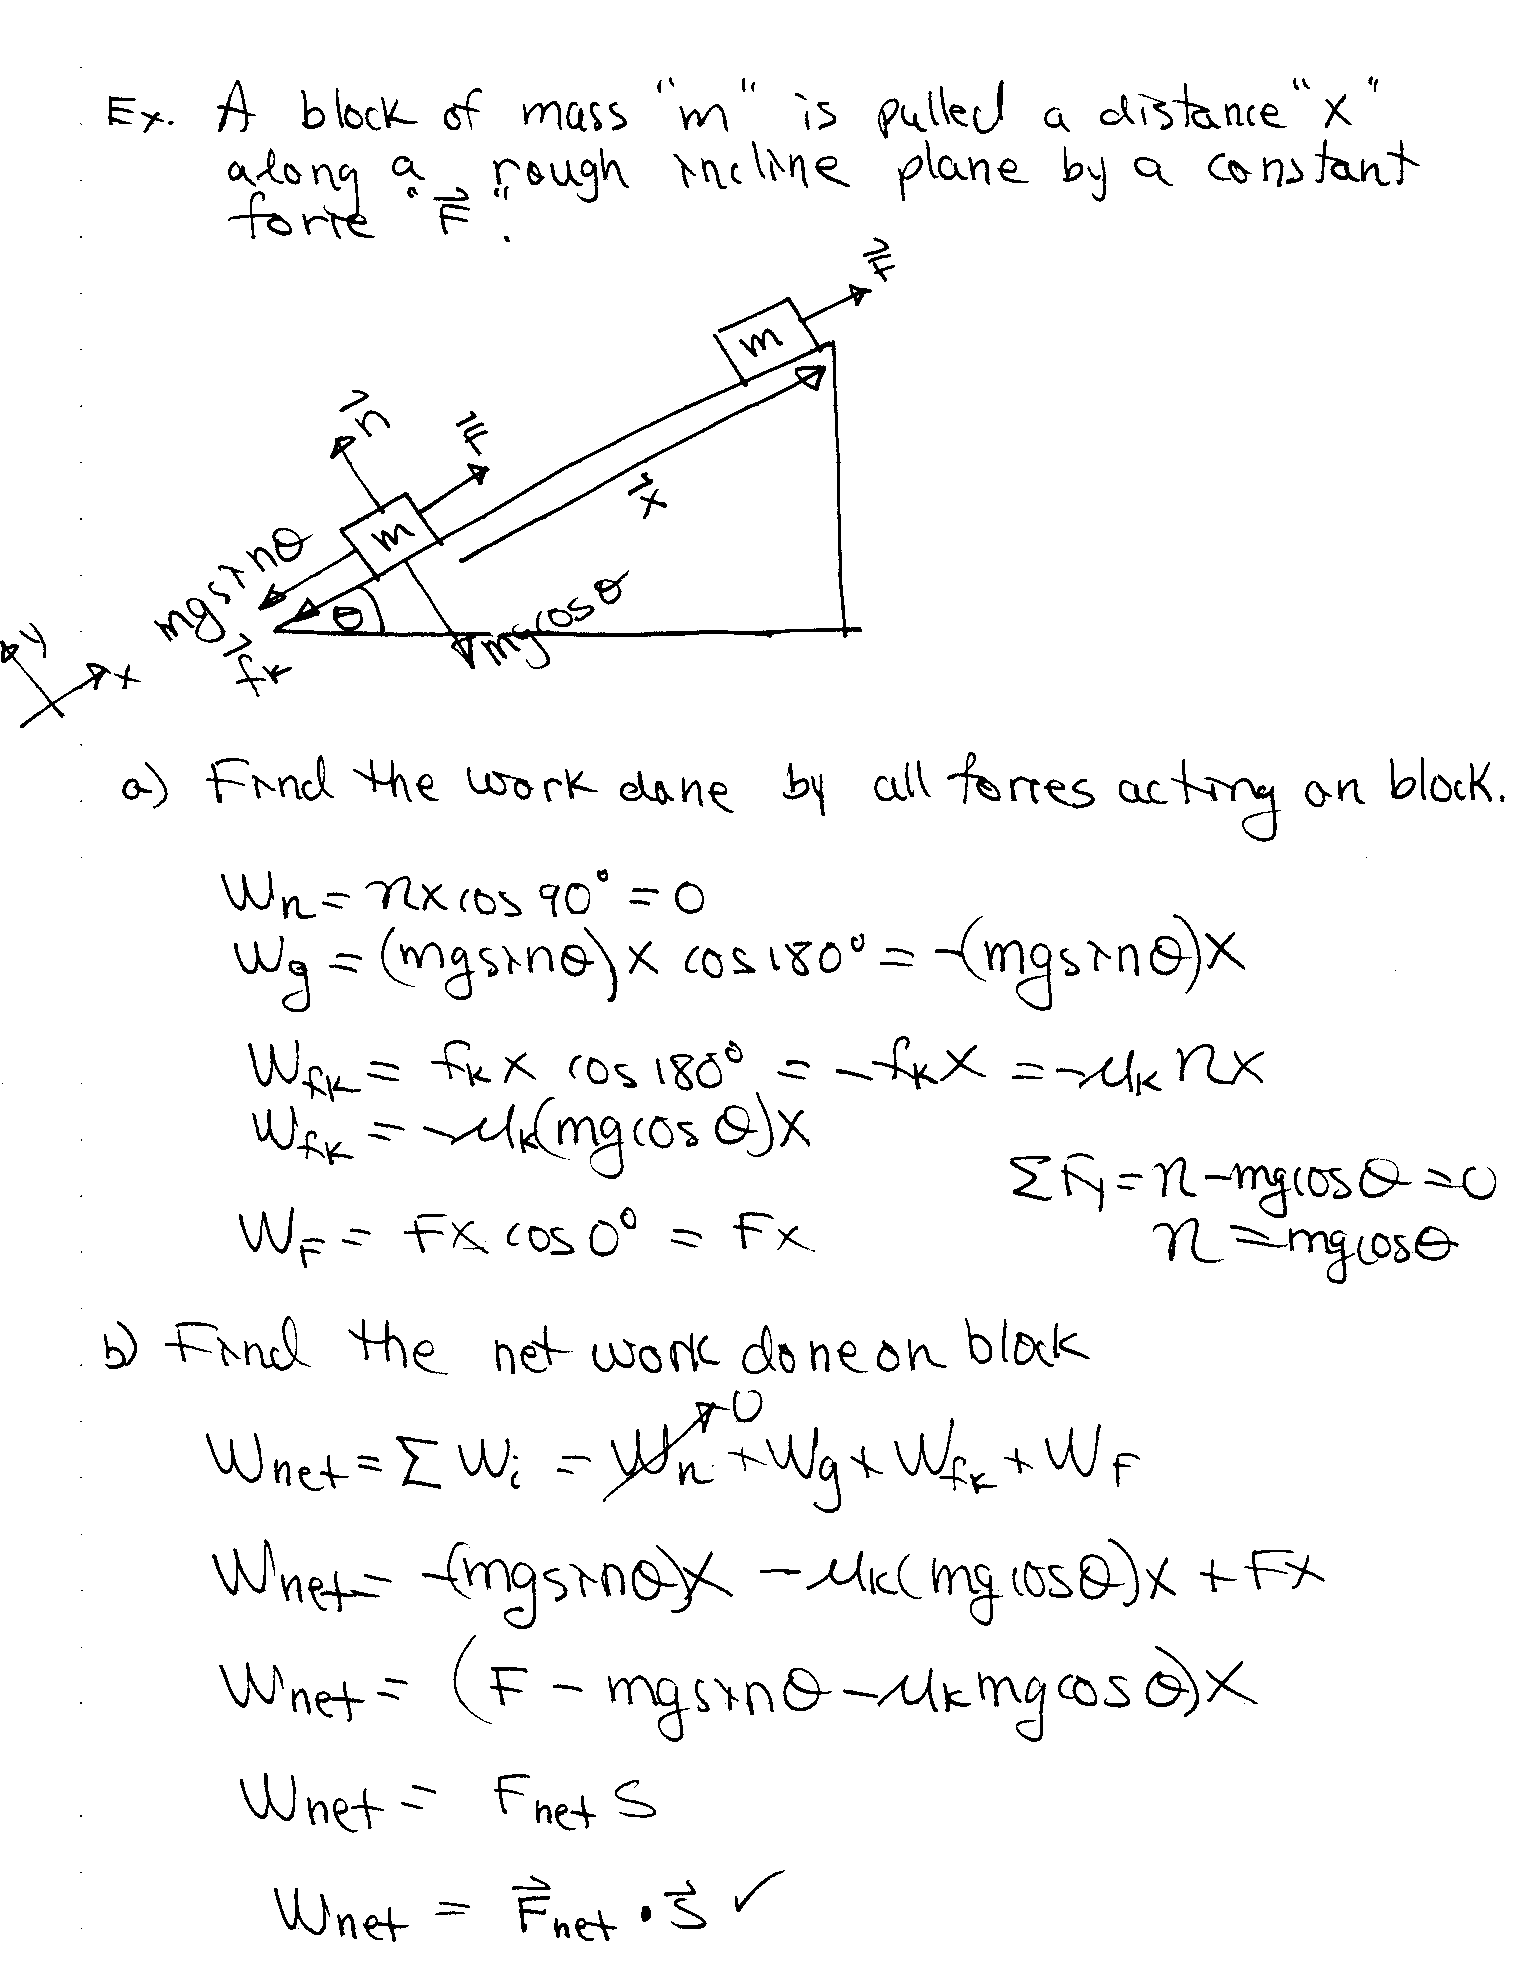 Ex. A block of mass "m" is pulled a distance "x"
along a rough incline plane by a constant
force "F⃗".
F⃗
m
n⃗
F⃗
x⃗
m
mgsinθ
θ
mgcosθ
y
x
f⃗k
a) Find the work done by all forces acting on block.
Wn = nx cos 90° = 0
Wg = (mgsinθ)x cos 180° = -(mgsinθ)x
Wfk = fkx cos 180° = -fkx = -μk nx
Wfk = -μk(mgcosθ)x
ΣFy = n - mgcosθ = 0
WF = Fx cos 0° = Fx
n = mgcosθ
b) Find the net work done on block
0
Wnet = ΣWi = Wn + Wg + Wfk + WF
Wnet = -(mgsinθ)x - μk(mgcosθ)x + Fx
Wnet = (F - mgsinθ - μkmgcosθ)x
Wnet = Fnet S
Wnet = F⃗net • S⃗ ✓